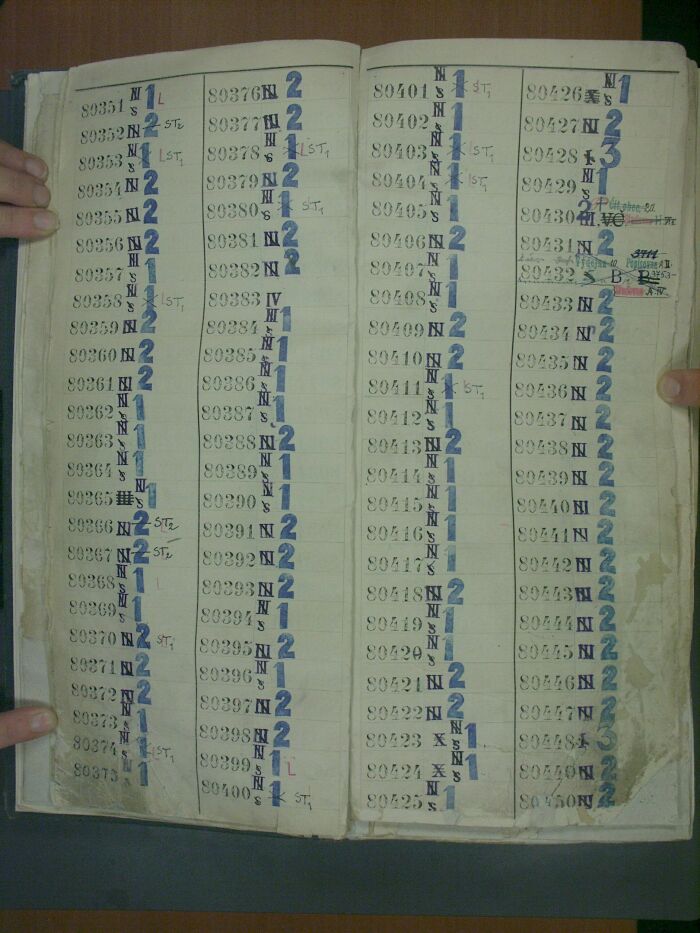 80351 N S 1 L
80352 N 2 ST2
80353 N S 1 LST1
80354 N 2
80355 N 2
80356 N 2
80357 N S 1
80358 N S 1 LST1
80359 N 2
80360 N 2
80361 N 2
80362 N S 1
80363 N S 1
80364 N S 1
80365 III N S 1
80366 N 2 ST2
80367 N 2 ST2
80368 N S 1
80369 N S 1
80370 N 2 ST1
80371 N 2
80372 N 2
80373 N S 1
80374 N S 1 LST1
80375 N S 1
80376 N 2
80377 N 2
80378 N S 1 LST1
80379 N 2
80380 N S 1 ST1
80381 N 2
80382 N 2
80383 IV
80384 N S 1
80385 N S 1
80386 N S 1
80387 N S 1
80388 N 2
80389 N S 1
80390 N S 1
80391 N 2
80392 N 2
80393 N 2
80394 N S 1
80395 N 2
80396 N S 1
80397 N 2
80398 N 2
80399 N S 1 L
80400 N S 1 ST1
80401 N S 1 ST1
80402 N S 1
80403 N S 1 LST1
80404 N S 1 LST1
80405 N S 1
80406 N 2
80407 N S 1
80408 N S 1
80409 N 2
80410 N 2
80411 N S 1 LST1
80412 N S 1
80413 N 2
80414 N S 1
80415 N S 1
80416 N S 1
80417 N S 1
80418 N 2
80419 N S 1
80420 N S 1
80421 N 2
80422 N 2
80423 X N S 1
80424 X N S 1
80425 N S 1
80426 X N S 1
80427 N 2
80428 I 3
80429 N S 1
80430 2 III. VC
80431 N 2
80432 S B B
80433 N 2
80434 N 2
80435 N 2
80436 N 2
80437 N 2
80438 N 2
80439 N 2
80440 N 2
80441 N 2
80442 N 2
80443 N 2
80444 N 2
80445 N 2
80446 N 2
80447 N 2
80448 I 3
80449 N 2
80450 N 2